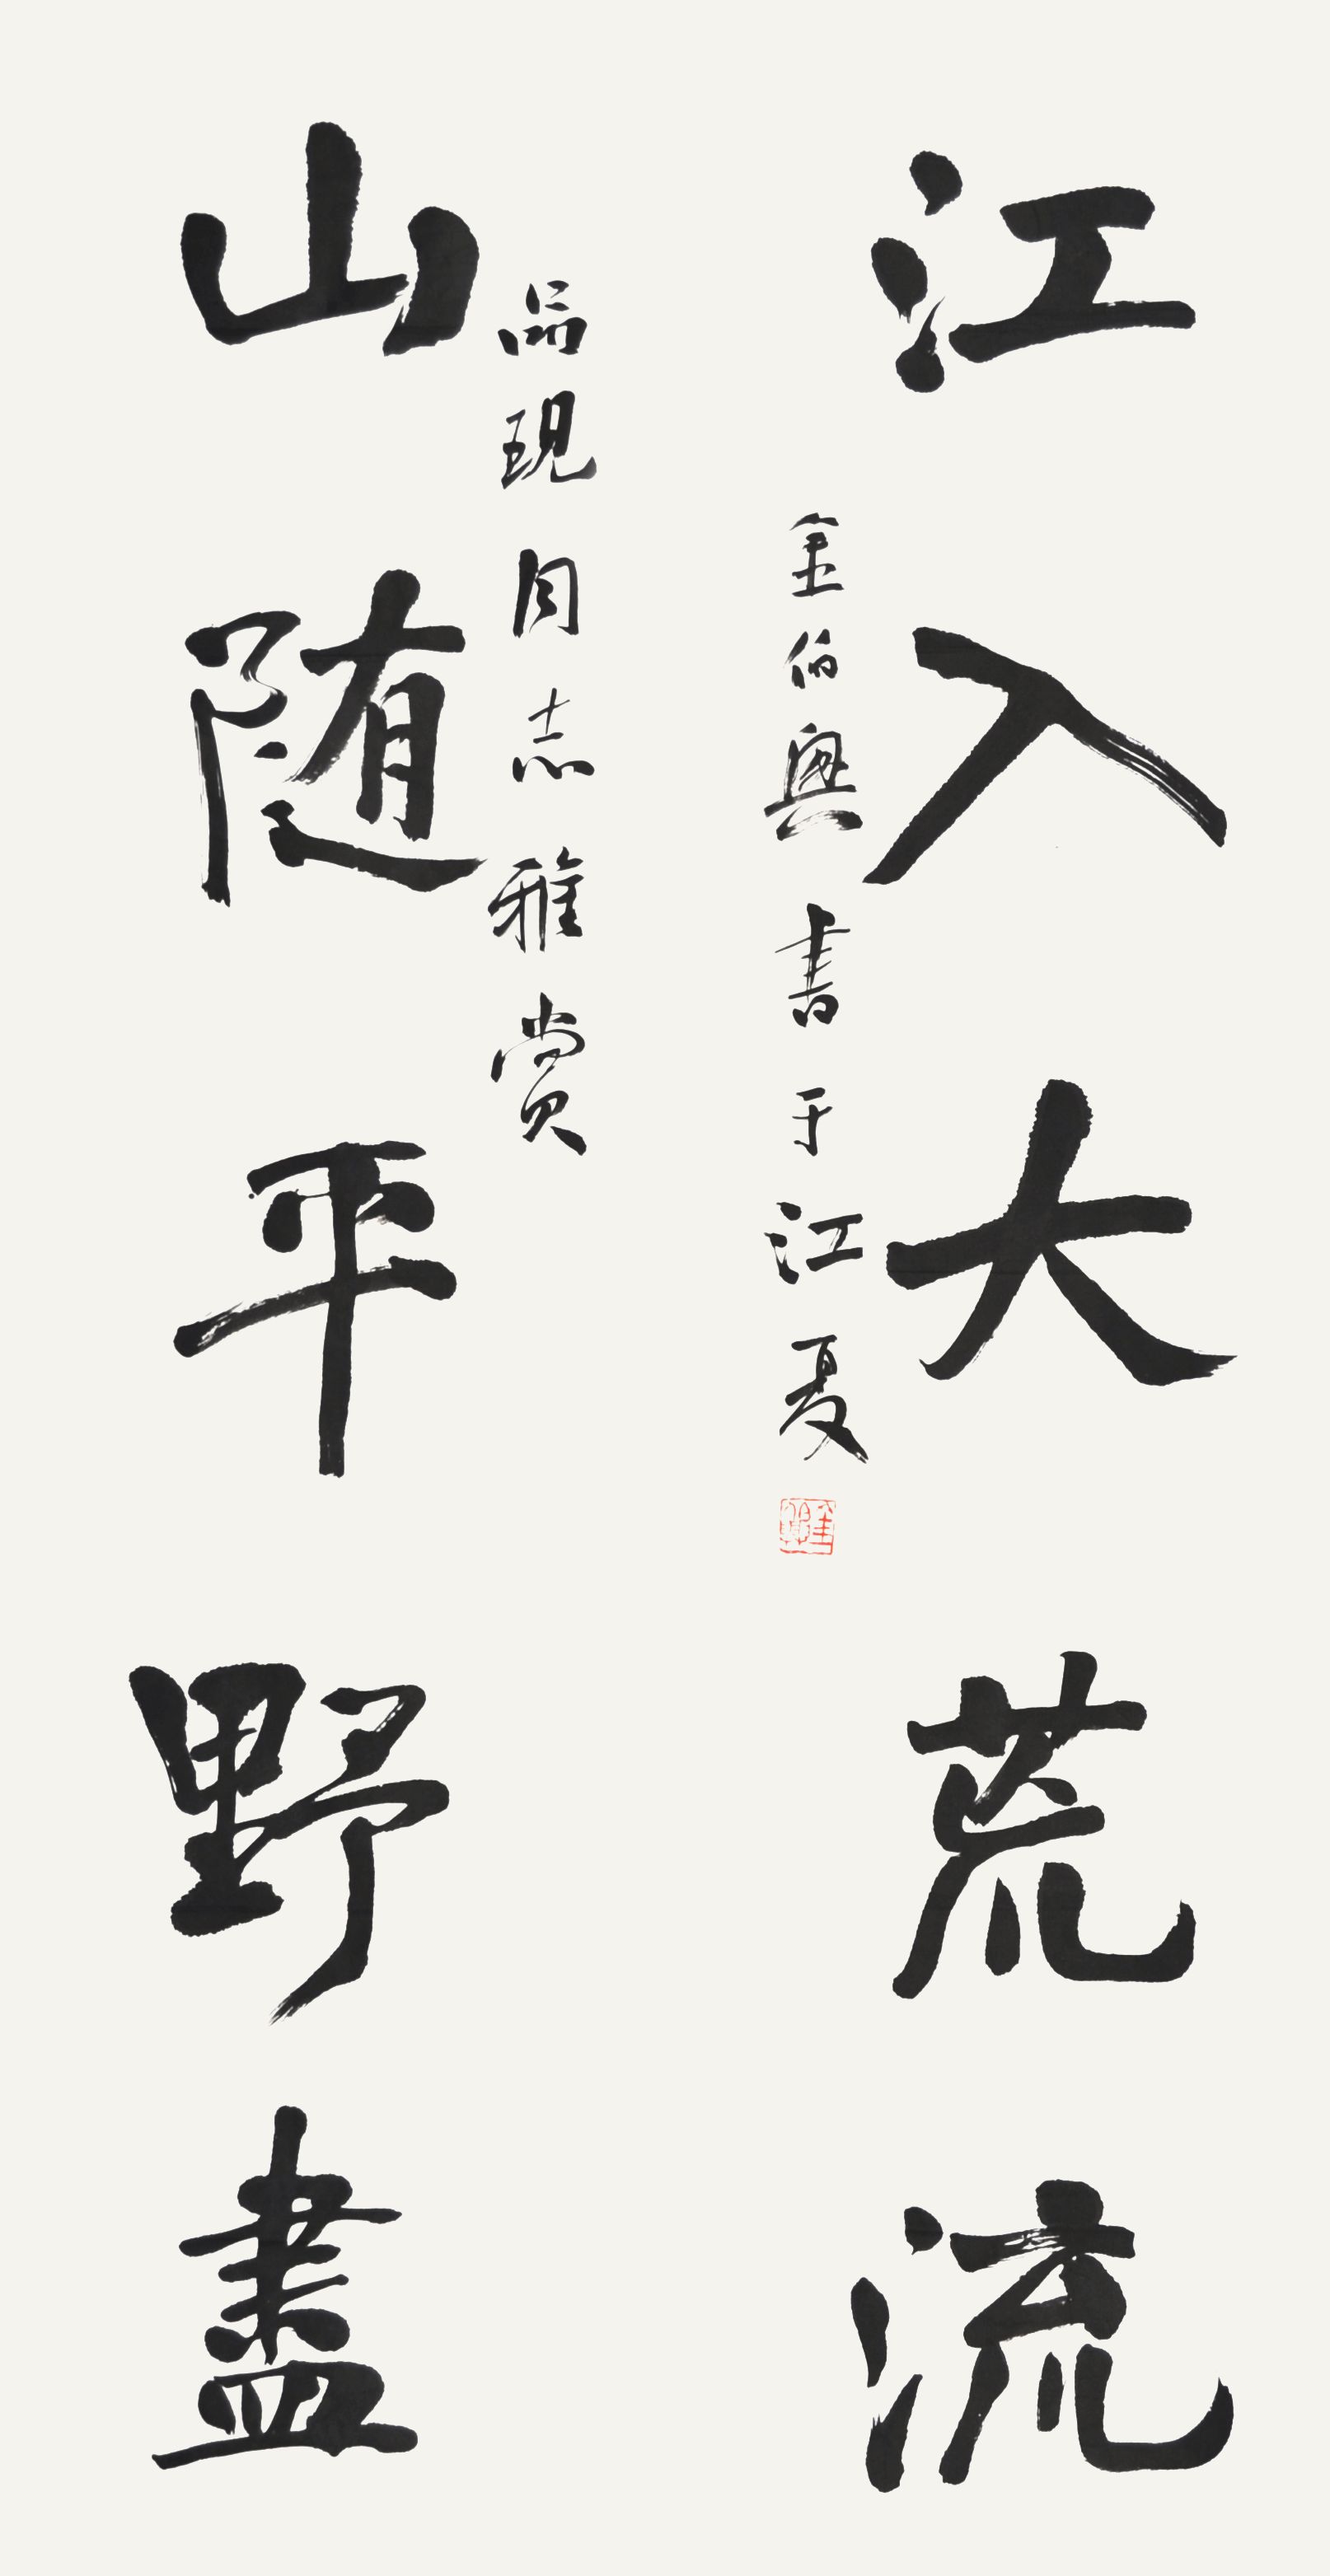 山随平野盡
品現同志雅賞
江入大荒流
金伯興書于江夏